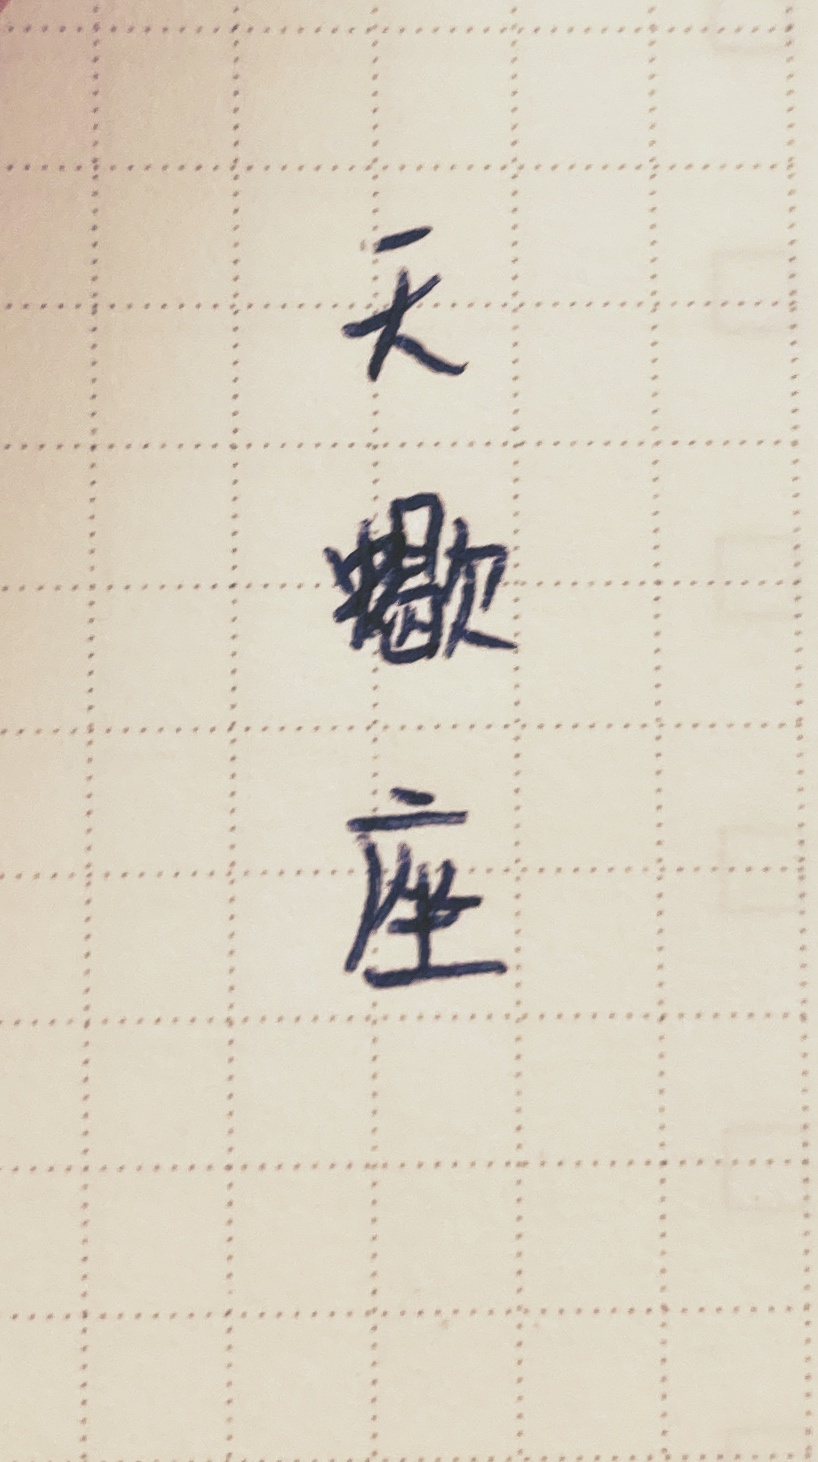 天蠍座